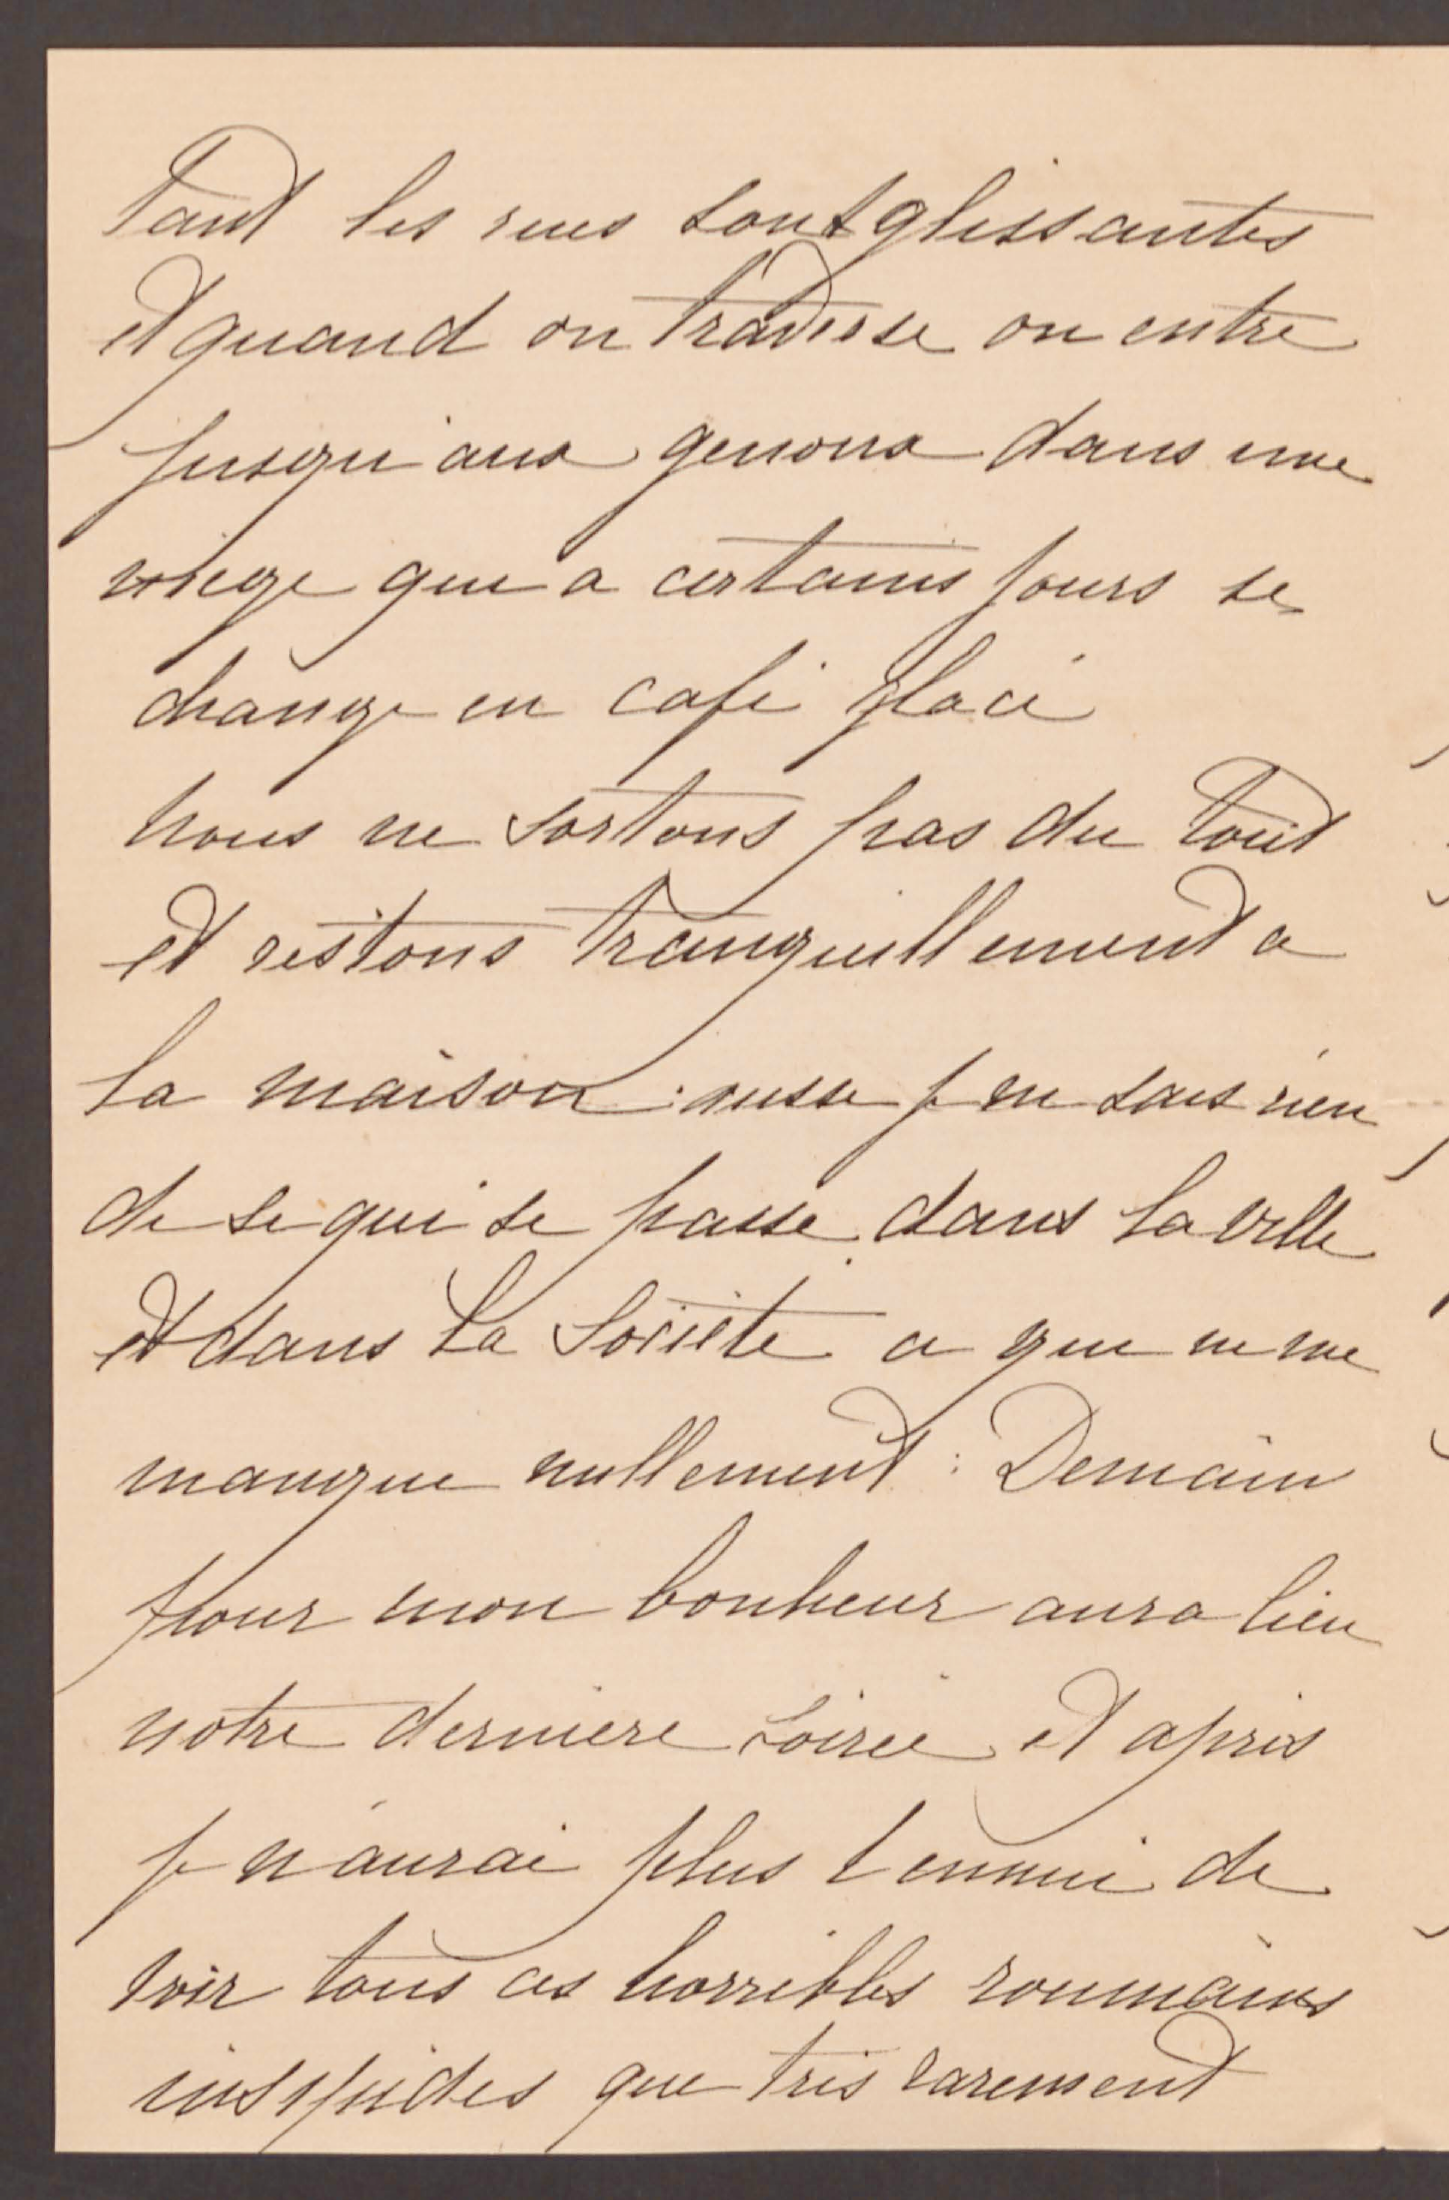 Tant les rues sont glissantes
et quand on traverse on entre
jusqu'aux genoux dans une
neige que a certains jours se
change en café glacé
nous ne sortons pas du tout
et restons tranquillement a
la maison : aussi je ne sais rien
de se qui se passe dans la ville
et dans la Société a que ne me
manque nullement : Demain
pour mon bonheur aura lieu
notre derniere soirée et après
je n'aurai plus l ennui de
voir tous ces horribles roumains
insipides que très rarement